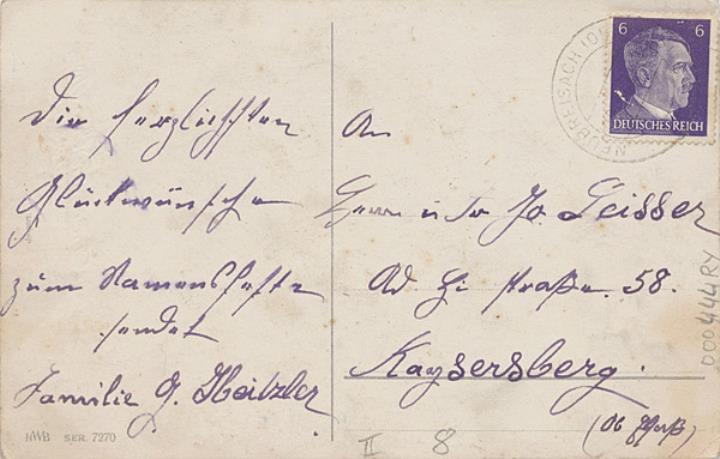 Die herzlichsten
Glückwünsche
zum Namensfeste
sendet
Familie G. Heitzler
HWB SER. 7270
An
Herrn u. Jo. Geisser
Ad Hi straße. 58.
Kaysersberg.
(Ob Elsaß)
II 8
000444RY
NEUBREISACH (O
6 6
DEUTSCHES REICH